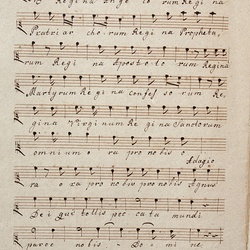 Regina Ange lo rum Regi na
Patriar cho rum Regi na Propheta,
rum Regi na Aposto lo rum Regina
Martyrum Re gi na confes so rum Re,
gina Virgi num Re gi na Sanctorum
omnium o ra pro nobis o
Adagio
ra o ra pro nobis pro nobis Agnus
De i qui tollis pec ca ta mundi
parce nobis Do mi ne